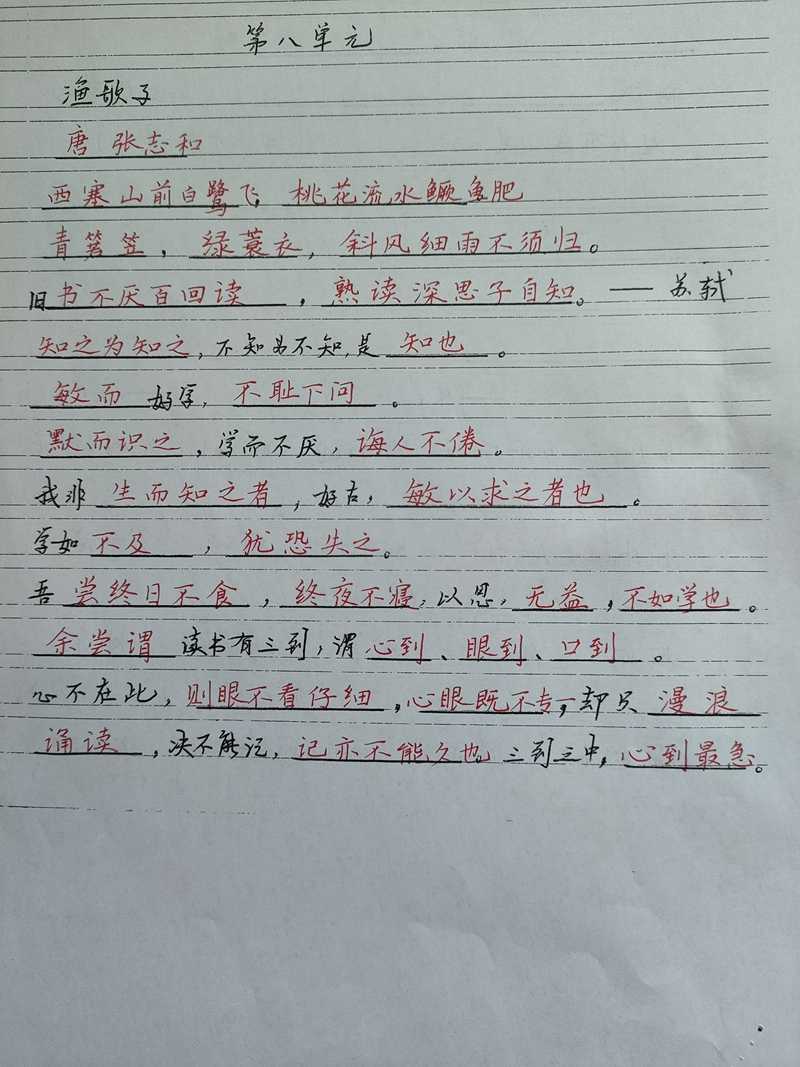 第八单元
渔歌子
唐 张志和
西塞山前白鹭飞，桃花流水鳜鱼肥
青箬笠，绿蓑衣，斜风细雨不须归。
旧书不厌百回读，熟读深思子自知。——苏轼
知之为知之，不知为不知，是知也。
敏而好学，不耻下问。
默而识之，学而不厌，诲人不倦。
我非生而知之者，好古，敏以求之者也。
学如不及，犹恐失之。
吾尝终日不食，终夜不寝，以思，无益，不如学也。
余尝谓读书有三到，谓心到、眼到、口到。
心不在此，则眼不看仔细，心眼既不专一，却只漫浪
诵读，决不能记，记亦不能久也。三到之中，心到最急。